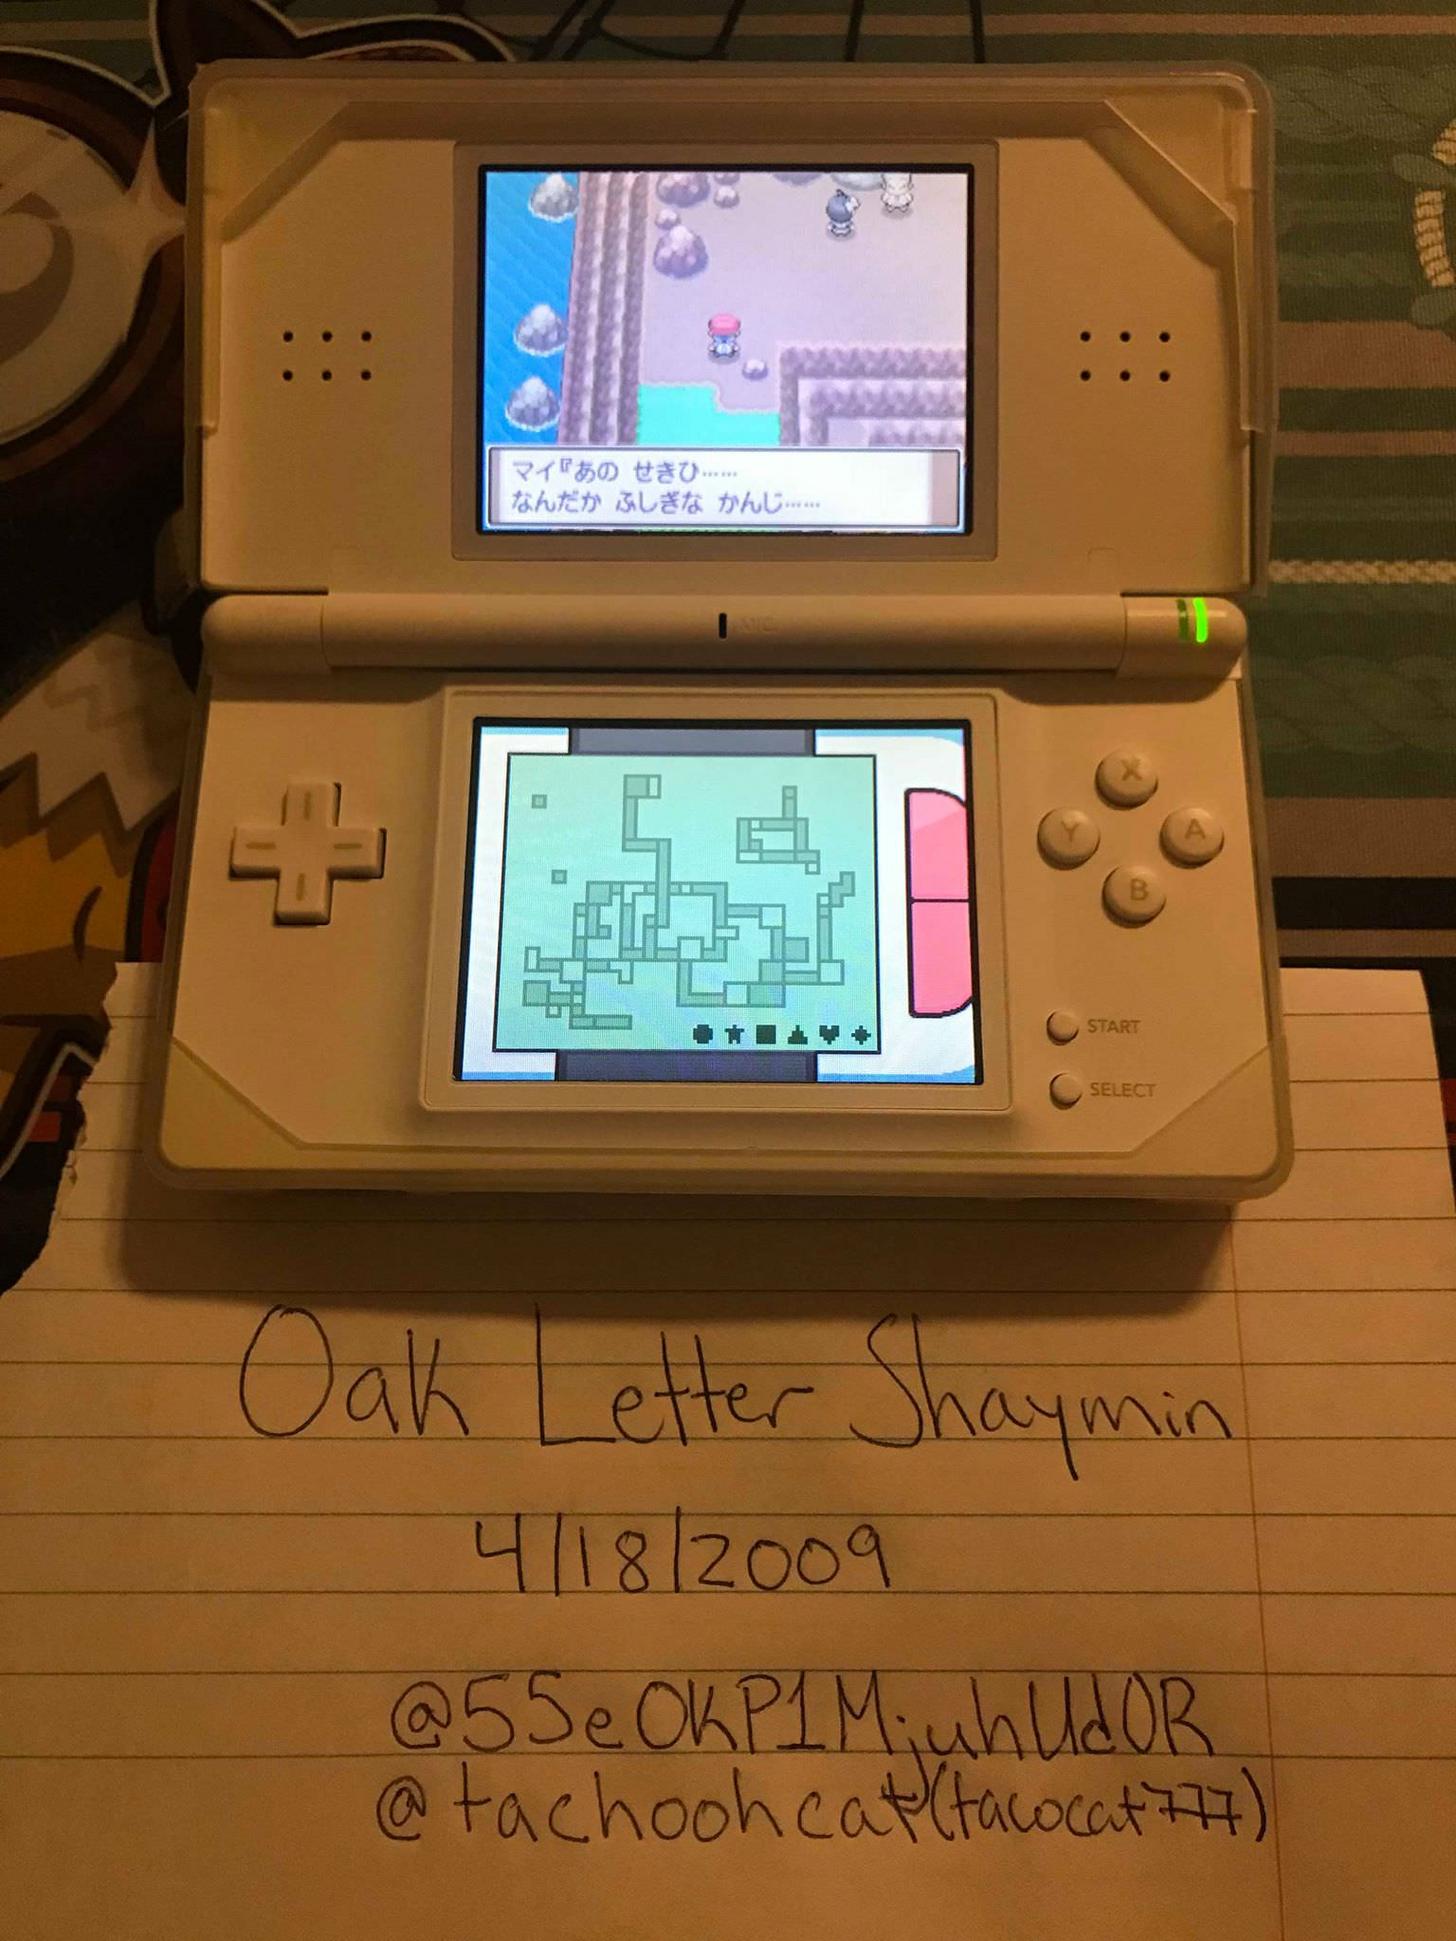 マイ『あの せきひ……
なんだか ふしぎな かんじ……
MIC.
X
Y
A
B
START
SELECT
Oak Letter Shaymin
4/18/2009
@55eOKP1MjuhUdOR
@tachoohcat(tacocat777)